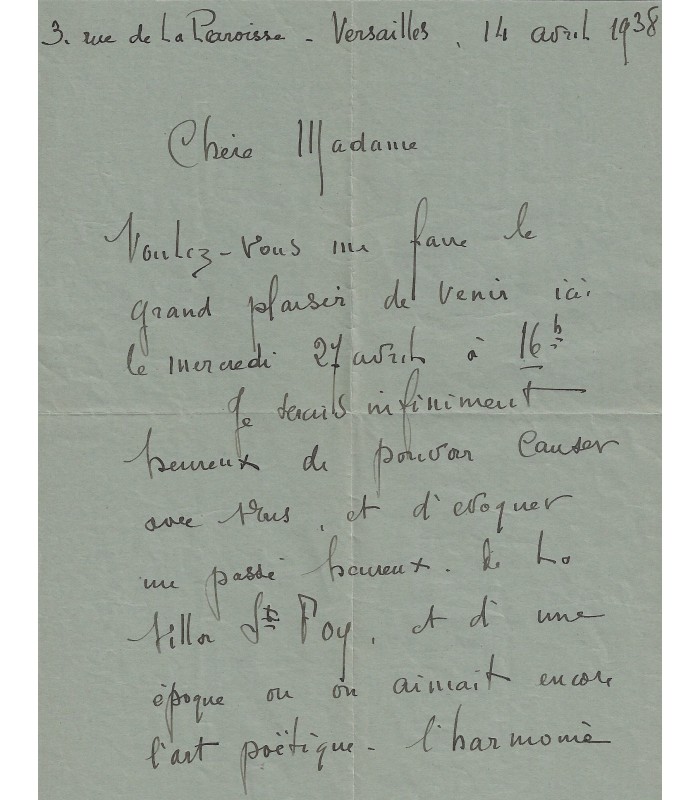 3. rue de La Paroisse - Versailles, 14 avril 1938
Chère Madame
Voulez-vous me faire le
grand plaisir de venir ici
le mercredi 27 avril à 16h
Je serais infiniment
heureux de pouvoir causer
avec vous, et d'evoquer
un passé heureux. de La
Villa Ste Foy, et d'une
époque ou on aimait encore
l'art poëtique - l'harmonie